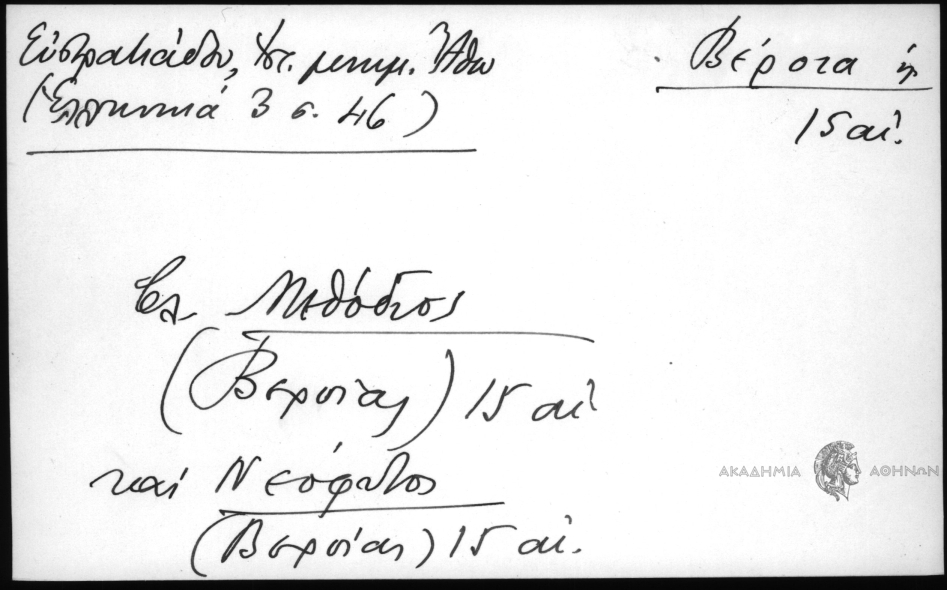 Εὐστρατιάδου, Ἱστ. μνημ. Ἄθω
(Ἑλληνικά 3 σ. 46)
Βέροια ἡ
15 αἰ.
βλ. Μεθόδιος
(Βεροίας) 15 αἰ
καί Νεόφυτος
(Βεροίας) 15 αἰ.
ΑΚΑΔΗΜΙΑ ΑΘΗΝΩΝ